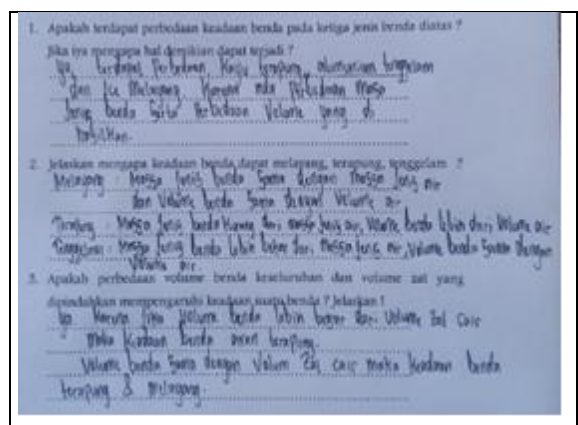 1. Apakah terdapat perbedaan keadaan benda pada ketiga jenis benda diatas ?
Jika iya mengapa hal demikian dapat terjadi ?
Ya, terdapat Perbedaan Kayu terapung, alumunium tenggelam
dan Melayang. Karena ada Perbedaan Massa
Jenis benda Serta Perbedaan Volume yang di
hasilkan.
2. Jelaskan mengapa keadaan benda dapat melayang, terapung, tenggelam ?
Melayang : Massa Jenis benda Sama dengan Massa Jenis air
dan Volume benda Sama dengan Volume air
Terapung : Massa Jenis benda Kurang dari massa Jenis air, Volume benda lebih dari Volume air
Tenggelam : Massa Jenis benda lebih besar dari Massa Jenis air, Volume benda Sama dengan
Volume air
3. Apakah perbedaan volume benda keseluruhan dan volume zat yang
dipindahkan mempengaruhi keadaan suatu benda ? Jelaskan !
Ya Karena Jika Volume benda lebih besar dari Volume Zat Cair
Maka Keadaan benda akan terapung.
Volume benda Sama dengan Volum Zat cair maka Keadaan benda
terapung & Melayang.